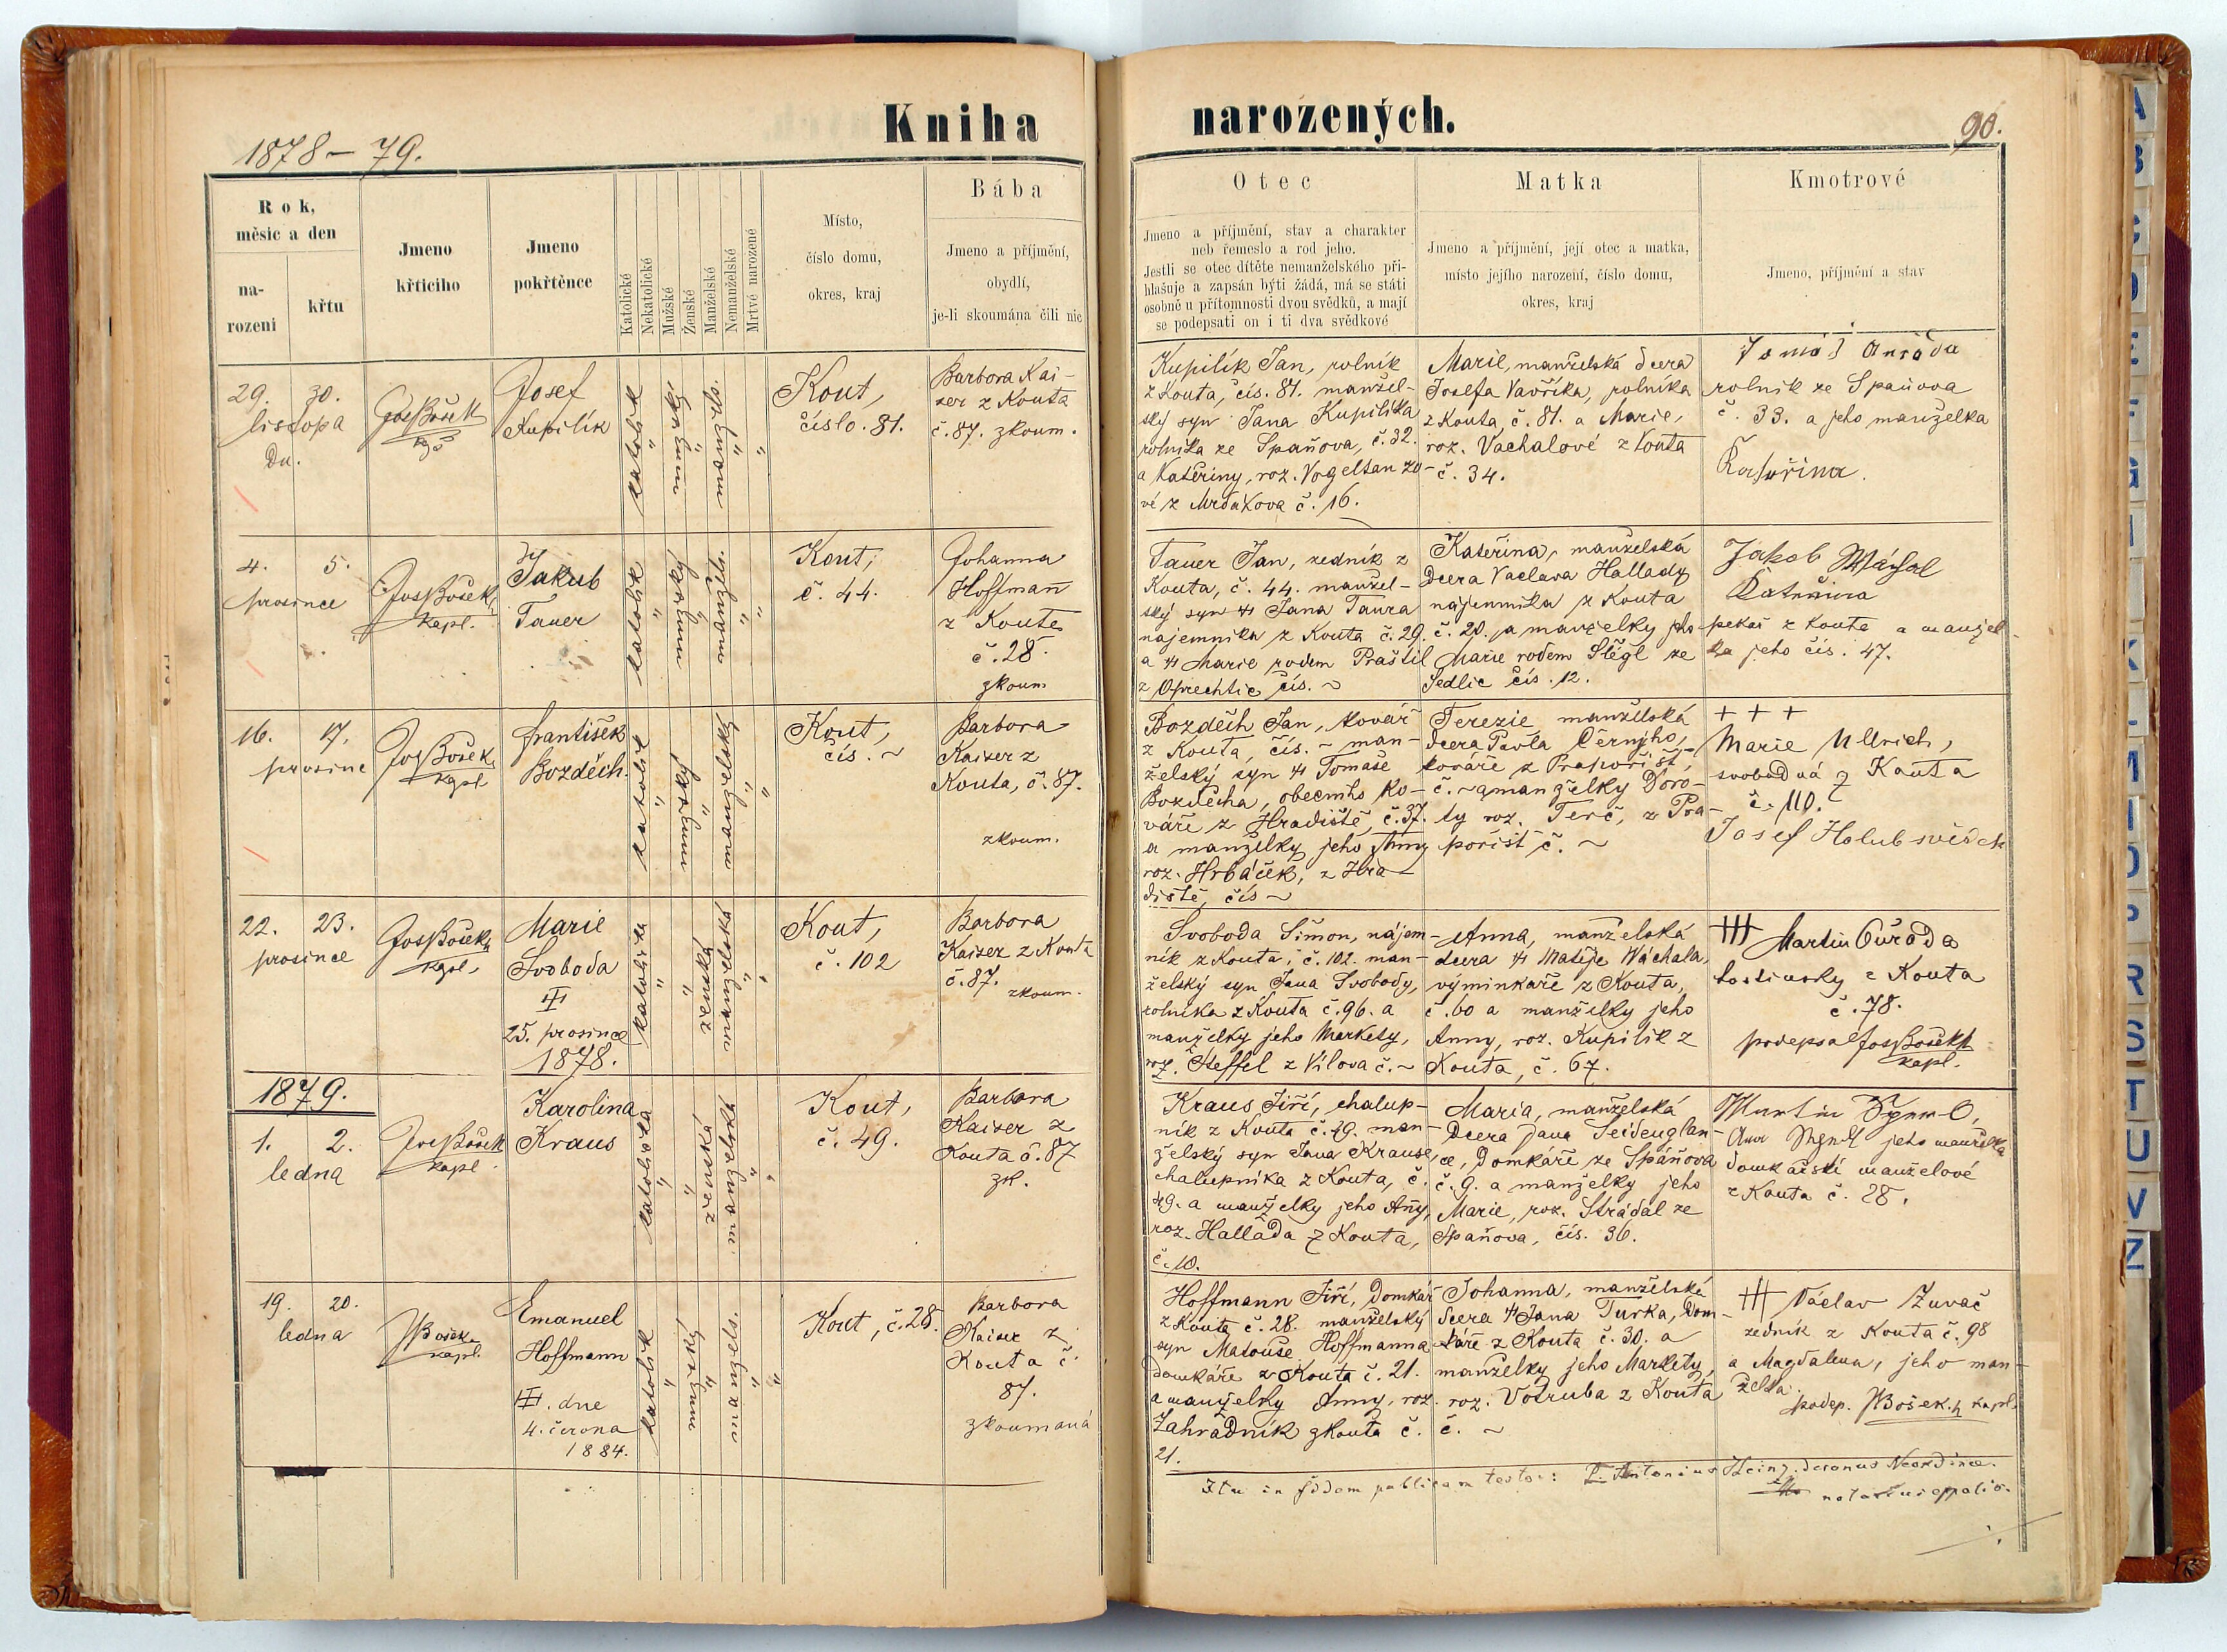 1878 – 79.
Kniha narozených.
90.
Rok,
měsíc a den
na-
rození
křtu
Jmeno
křtícího
Jmeno
pokřtěnce
Katolické
Nekatolické
Mužské
Ženské
Manželské
Nemanželské
Mrtvé narozené
Místo,
číslo domu,
okres, kraj
Bába
Jmeno a příjmění,
obydlí,
je-li skoumána čili nic
Otec
Jmeno a příjmění, stav a charakter
neb řemeslo a rod jeho.
Jestli se otec dítěte nemanželského při-
hlašuje a zapsán býti žádá, má se státi
osobně u přítomnosti dvou svědků, a mají
se podepsati on i ti dva svědkové
Matka
Jmeno a příjmění, její otec a matka,
místo jejího narození, číslo domu,
okres, kraj
Kmotrové
Jmeno, příjmění a stav
29. 30.
listopa
du.
Jos Bošek
Josef
Kupilík
katolik
mužský
manžel.
Kout,
číslo. 81.
Barbora Kai-
ser z Kouta
č. 87. zkoum.
Kupilík Jan, rolník
z Kouta, čís. 81. manžel-
ský syn Jana Kupilíka
rolníka ze Spaňova, č. 32.
a Kateřiny, roz. Vogeltanzo-
vé z Mrdakova č. 16.
Marie, manželská dcera
Josefa Vavříka, rolníka
z Kouta, č. 81. a Marie,
roz. Vachalové z Kouta
č. 34.
Tomáš
rolník ze Spaňova
č. 33. a jeho manželka
Kateřina.
4. 5.
prosince
Jos Bošek
kapl.
Jakub
Tauer
katolik
mužský
manžels.
Kout,
č. 44.
Johanna
Hoffmann
z Kouta
č. 28.
zkoum
Tauer Jan, zedník z
Kouta, č. 44. manžel-
ský syn † Jana Taura
najemníka z Kouta č. 29.
a † Marie rodem Praštil
z Oprechtic čís. ~
Kateřina, manželská
dcera Vaclava Hallady
najemníka z Kouta
č. 20. a manželky jeho
Marie rodem Šlégl ze
Sedlic čís. 12.
Jakob
Kateřina
pekař z Kouta a manžel-
ka jeho čís. 47.
16. 17.
prosince
Jos Bošek
kapl
František
Bozděch.
katolik
mužský
manželský
Kout,
čís. ~
Barbora
Kaiser z
Kouta, č. 87.
zkoum.
Bozděch Jan, kovář
z Kouta, čís. ~ man-
želský syn † Tomáše
Bozděcha, obecního ko-
váře z Hradiště, č. 37.
a manželky jeho Anny
roz. Hrbáček, z Hra-
diště, čís ~
Terezie, manželská
dcera Pavla Černýho,
kováře z Prapořišť,
č. ~ a manželky Doro-
ty roz. Terč, z Pra-
pořišť č. ~
+ + +
Marie Ullrich,
svobodná z Kouta
č. 110.
Josef Holub svědek
22. 23.
prosince
Jos Bošek
kapl.
Marie
Svoboda
25. prosince
1878.
katolička
ženská
manželská
Kout,
č. 102
Barbora
Kaiser z Kouta
č. 87.
zkoum.
Svoboda Šimon, nájem-
ník z Kouta, č. 102. man-
želský syn Jana Svobody,
rolníka z Kouta č. 96. a
manželky jeho Markety,
roz. Steffel z Vílova č. ~
Anna, manželská
dcera † Matěje Wáchala,
výminkáře z Kouta,
č. 60 a manželky jeho
Anny, roz. Kupilík z
Kouta, č. 67.
+++ Martin
hostinský z Kouta
č. 78.
podepsal Jos Bošek
kapl.
1879.
1. 2.
ledna
Jos Bošek
kapl.
Karolina
Kraus
katolička
ženská
manželská
Kout,
č. 49.
Barbora
Kaiser z
Kouta č. 87
zk.
Kraus Jiří, chalup-
ník z Kouta č. 49. man-
želský syn Jana Krause,
chalupníka z Kouta, č.
49. a manželky jeho Anny,
roz. Hallada z Kouta,
č. 10.
Maria, manželská
dcera Jana Seidenglan-
ce, domkáře ze Spáňova
č. 9. a manželky jeho
Marie, roz. Strádal ze
Spaňova, čís. 36.
Martin
jeho manželka
domkářští manželové
z Kouta č. 28.
19. 20.
ledna
Bošek
kapl.
Emanuel
Hoffmann
dne
4. června
1884.
katolik
mužský
manžels.
Kout, č. 28.
Barbora
Kaiser z
Kouta č.
87.
zkoumaná
Hoffmann Jiří, domkář
z Kouta č. 28. manželský
syn Matouše Hoffmanna
domkáře z Kouta č. 21.
a manželky Anny, roz.
Zahradník z Kouta č.
21.
Johanna, manželská
dcera † Jana Turka, dom-
káře z Kouta č. 30. a
manželky jeho Markéty,
roz. Votruba z Kouta
č. ~
+++ Václav Zuvač
zedník z Kouta č. 98
a Magdalena, jeho man-
želka.
podep. Bošek kapl.
Ita in fidem publicam testor: P. Antonius Heinz, decanus Neogedine.
notarius appalis.
A
B
C
D
E
F
G
I
K
L
M
O
P
R
S
T
U
V
Z